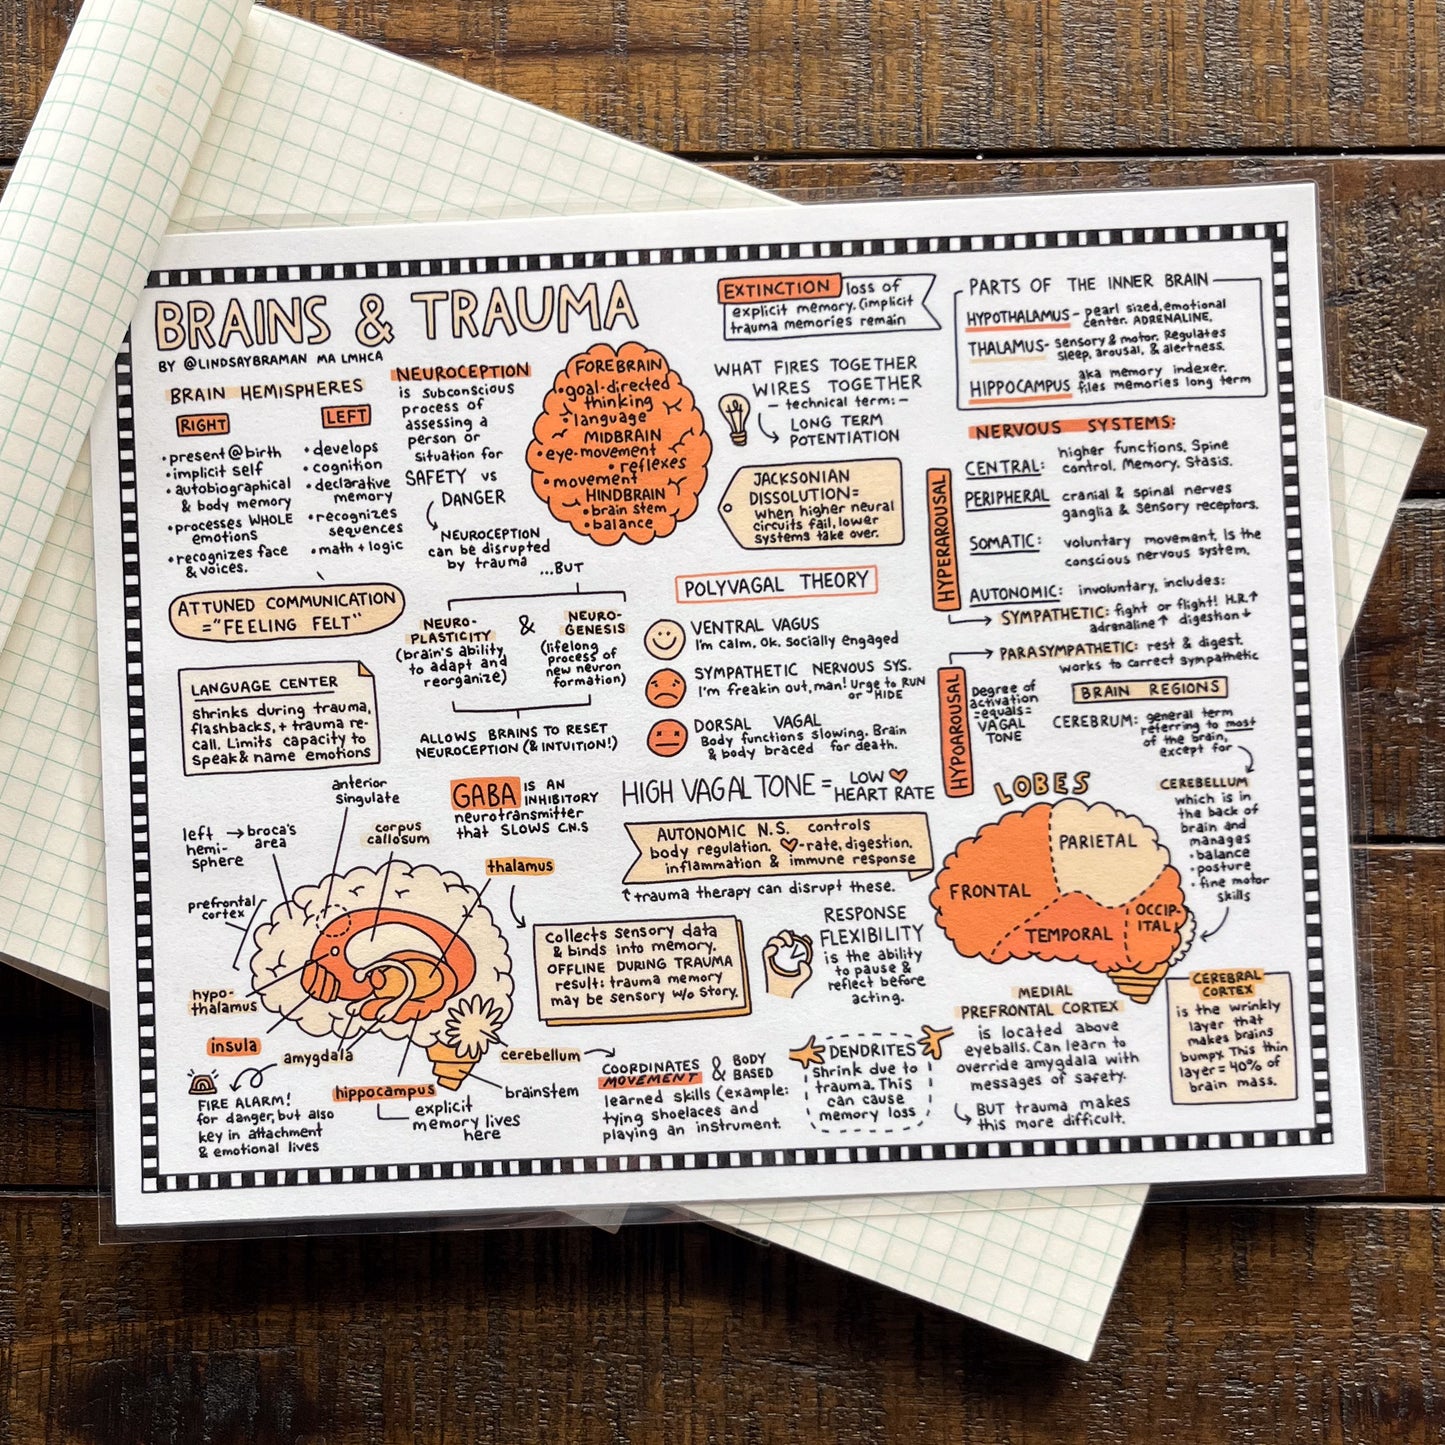 BRAINS & TRAUMA
BY @LINDSAYBRAMAN MA LMHCA
BRAIN HEMISPHERES
RIGHT
• present @ birth
• implicit self
• autobiographical
& body memory
• processes WHOLE
emotions
• recognizes face
& voices.
LEFT
• develops
• cognition
• declarative
memory
• recognizes
sequences
• math + logic
ATTUNED COMMUNICATION
="FEELING FELT"
LANGUAGE CENTER
Shrinks during trauma,
flashbacks, + trauma re-
call. Limits capacity to
speak & name emotions
NEUROCEPTION
is subconscious
process of
assessing a
person or
situation for
SAFETY vs
DANGER
NEUROCEPTION
can be disrupted
by trauma
...BUT
NEURO-
PLASTICITY
(brain's ability
to adapt and
reorganize)
&
NEURO-
GENESIS
(lifelong
process of
new neuron
formation)
ALLOWS BRAINS TO RESET
NEUROCEPTION (& INTUITION!)
FOREBRAIN
• goal-directed
thinking
• language
MIDBRAIN
• eye-movement
• reflexes
• movement
HINDBRAIN
• brain stem
• balance
EXTINCTION loss of
explicit memory. (implicit
trauma memories remain
WHAT FIRES TOGETHER
WIRES TOGETHER
- technical term: -
LONG TERM
POTENTIATION
JACKSONIAN
DISSOLUTION=
when higher neural
circuits fail, lower
systems take over.
POLYVAGAL THEORY
VENTRAL VAGUS
I'm calm. Ok. Socially engaged
SYMPATHETIC NERVOUS SYS.
I'm freakin out, man! Urge to RUN
or HIDE
DORSAL VAGAL
Body functions slowing. Brain
& body braced for death.
HIGH VAGAL TONE = LOW
HEART RATE
AUTONOMIC N.S. controls
body regulation. -rate, digestion,
inflammation & immune response
↑ trauma therapy can disrupt these.
PARTS OF THE INNER BRAIN
HYPOTHALAMUS - pearl sized, emotional
center. ADRENALINE.
THALAMUS - sensory & motor. Regulates
sleep, arousal, & alertness.
HIPPOCAMPUS aka memory indexer.
files memories long term
NERVOUS SYSTEMS:
CENTRAL: higher functions. Spine
control. Memory. Stasis.
PERIPHERAL cranial & spinal nerves
ganglia & sensory receptors.
SOMATIC: voluntary movement. Is the
conscious nervous system.
AUTONOMIC: involuntary, includes:
SYMPATHETIC: fight or flight! H.R.↑
adrenaline ↑ digestion ↓
PARASYMPATHETIC: rest & digest.
works to correct sympathetic
HYPERAROUSAL
HYPOAROUSAL
Degree of
activation
=equals=
VAGAL
TONE
BRAIN REGIONS
CEREBRUM: general term
referring to most
of the brain,
except for
CEREBELLUM
which is in
the back of
brain and
manages
• balance
• posture
• fine motor
skills
LOBES
FRONTAL
PARIETAL
TEMPORAL
OCCIP-
ITAL
CEREBRAL
CORTEX
is the wrinkly
layer that
makes brains
bumpy. This thin
layer = 40% of
brain mass.
MEDIAL
PREFRONTAL CORTEX
is located above
eyeballs. Can learn to
override amygdala with
messages of safety.
BUT trauma makes
this more difficult.
RESPONSE
FLEXIBILITY
is the ability
to pause &
reflect before
acting.
DENDRITES
Shrink due to
trauma. This
can cause
memory loss
GABA IS AN
INHIBITORY
neurotransmitter
that SLOWS C.N.S
anterior
singulate
left
hemi-
sphere
broca's
area
corpus
callosum
thalamus
prefrontal
cortex
collects sensory data
& binds into memory.
OFFLINE DURING TRAUMA
result: trauma memory
may be sensory w/o story.
hypo-
thalamus
insula
amygdala
FIRE ALARM!
for danger, but also
key in attachment
& emotional lives
hippocampus
explicit
memory lives
here
brainstem
cerebellum
COORDINATES
MOVEMENT
& BODY
BASED
learned skills (example:
tying shoelaces and
playing an instrument.